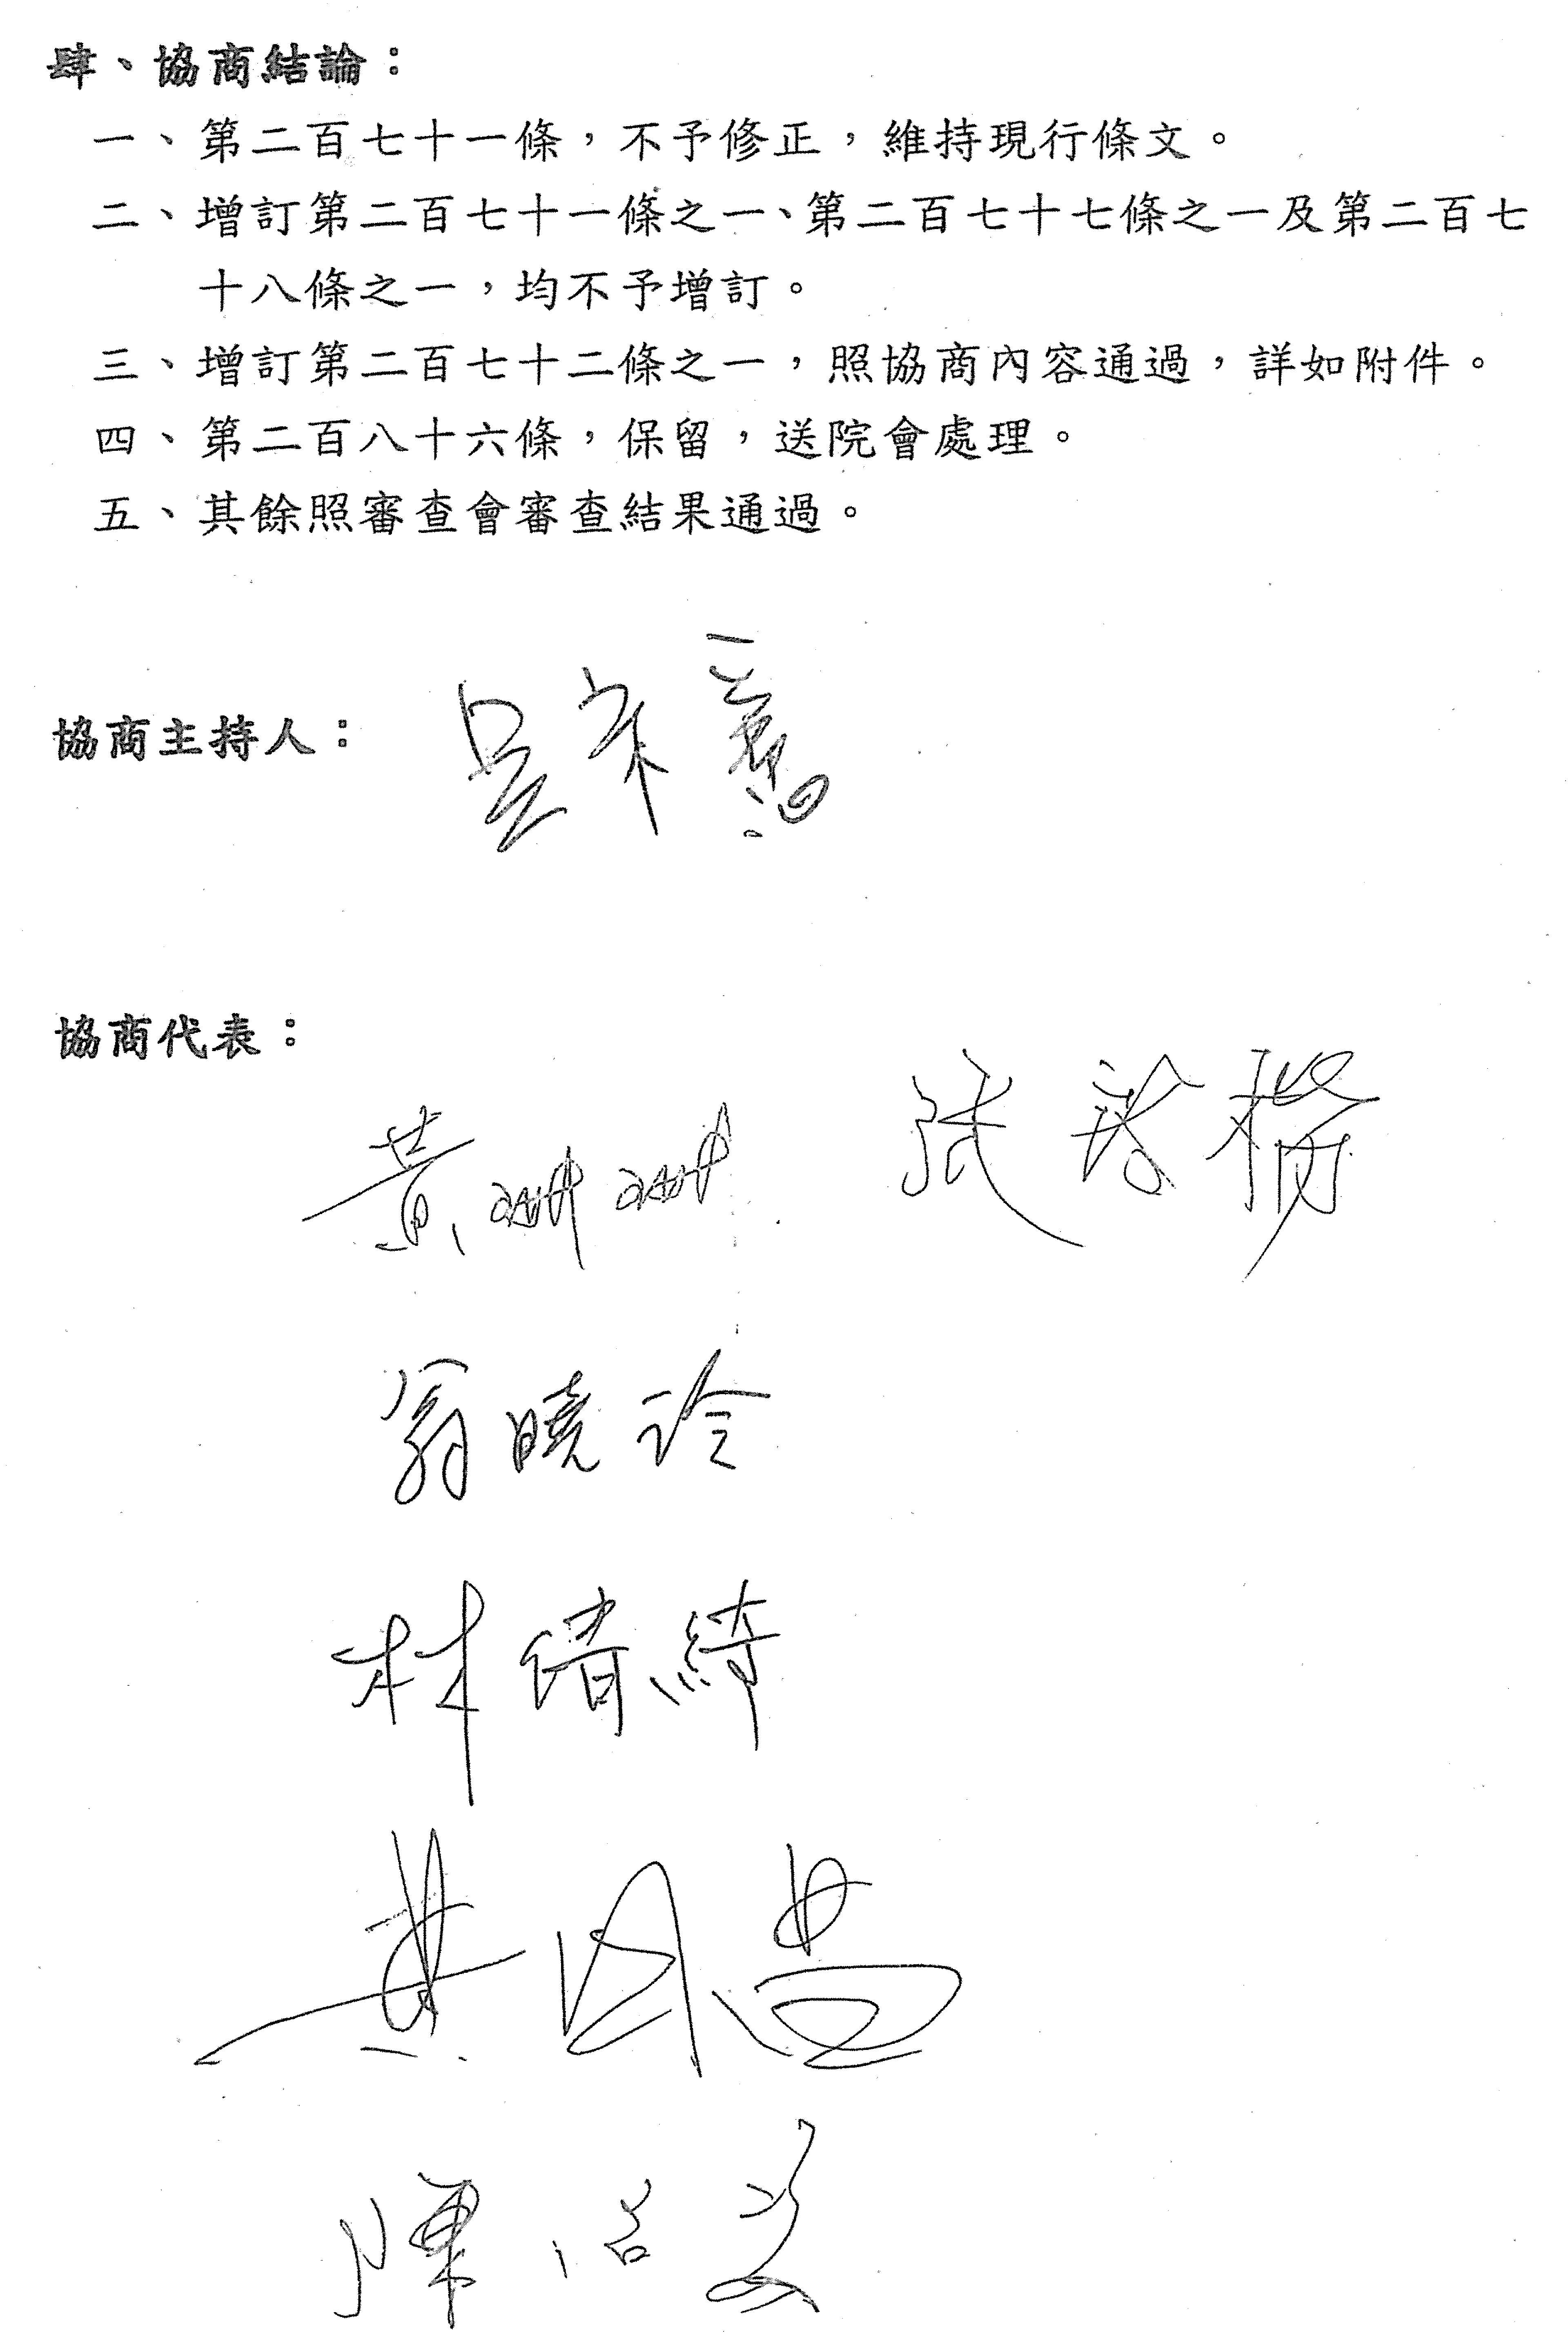 肆、協商結論：
一、第二百七十一條，不予修正，維持現行條文。
二、增訂第二百七十一條之一、第二百七十七條之一及第二百七
十八條之一，均不予增訂。
三、增訂第二百七十二條之一，照協商內容通過，詳如附件。
四、第二百八十六條，保留，送院會處理。
五、其餘照審查會審查結果通過。
協商主持人：吳宗憲
協商代表：
黃珊珊 張啓楷
翁曉玲
林倩綺
黃國昌
陳